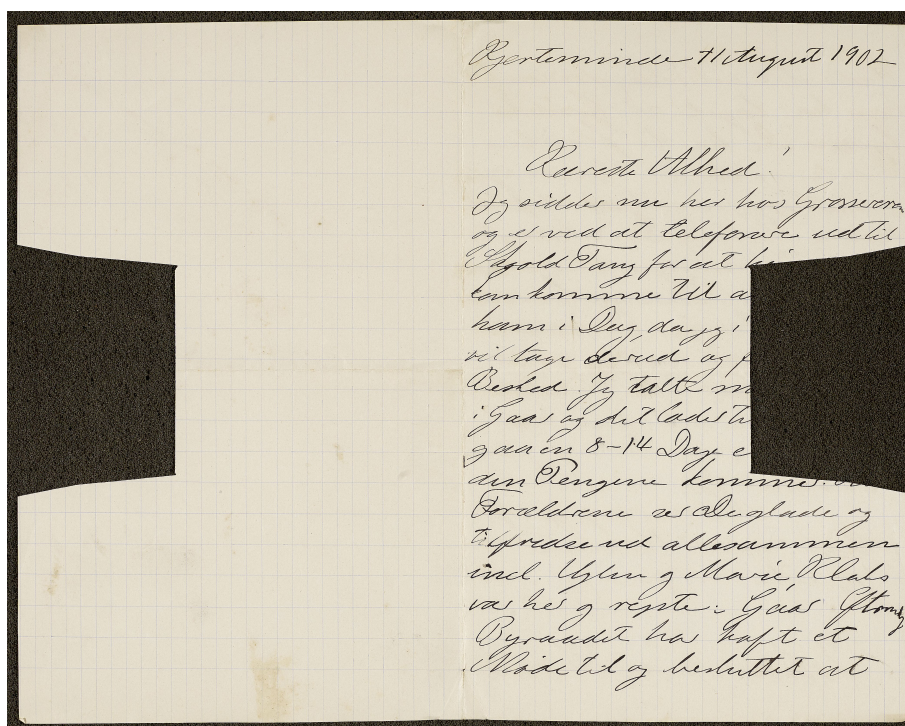 Kjerteminde 11 August 1902
Kæreste Alhed!
Jeg sidder nu her hos Grossereren
og er ved at telefonere ud til
Skjold Tang for at
kan komme til
ham i Dag, da jeg
vil tage derud og
Besked. Jeg talte
i Gaar og det lader
gaa en 8-14 Dage
den Pengene kommer.
Forældrene ser De glade og
tilfredse ud allesammen
incl. Uglen og Marie, Klaks
var her og rejste i Gaar Eftermdg
Byraadet har haft et
Møde til og besluttet at